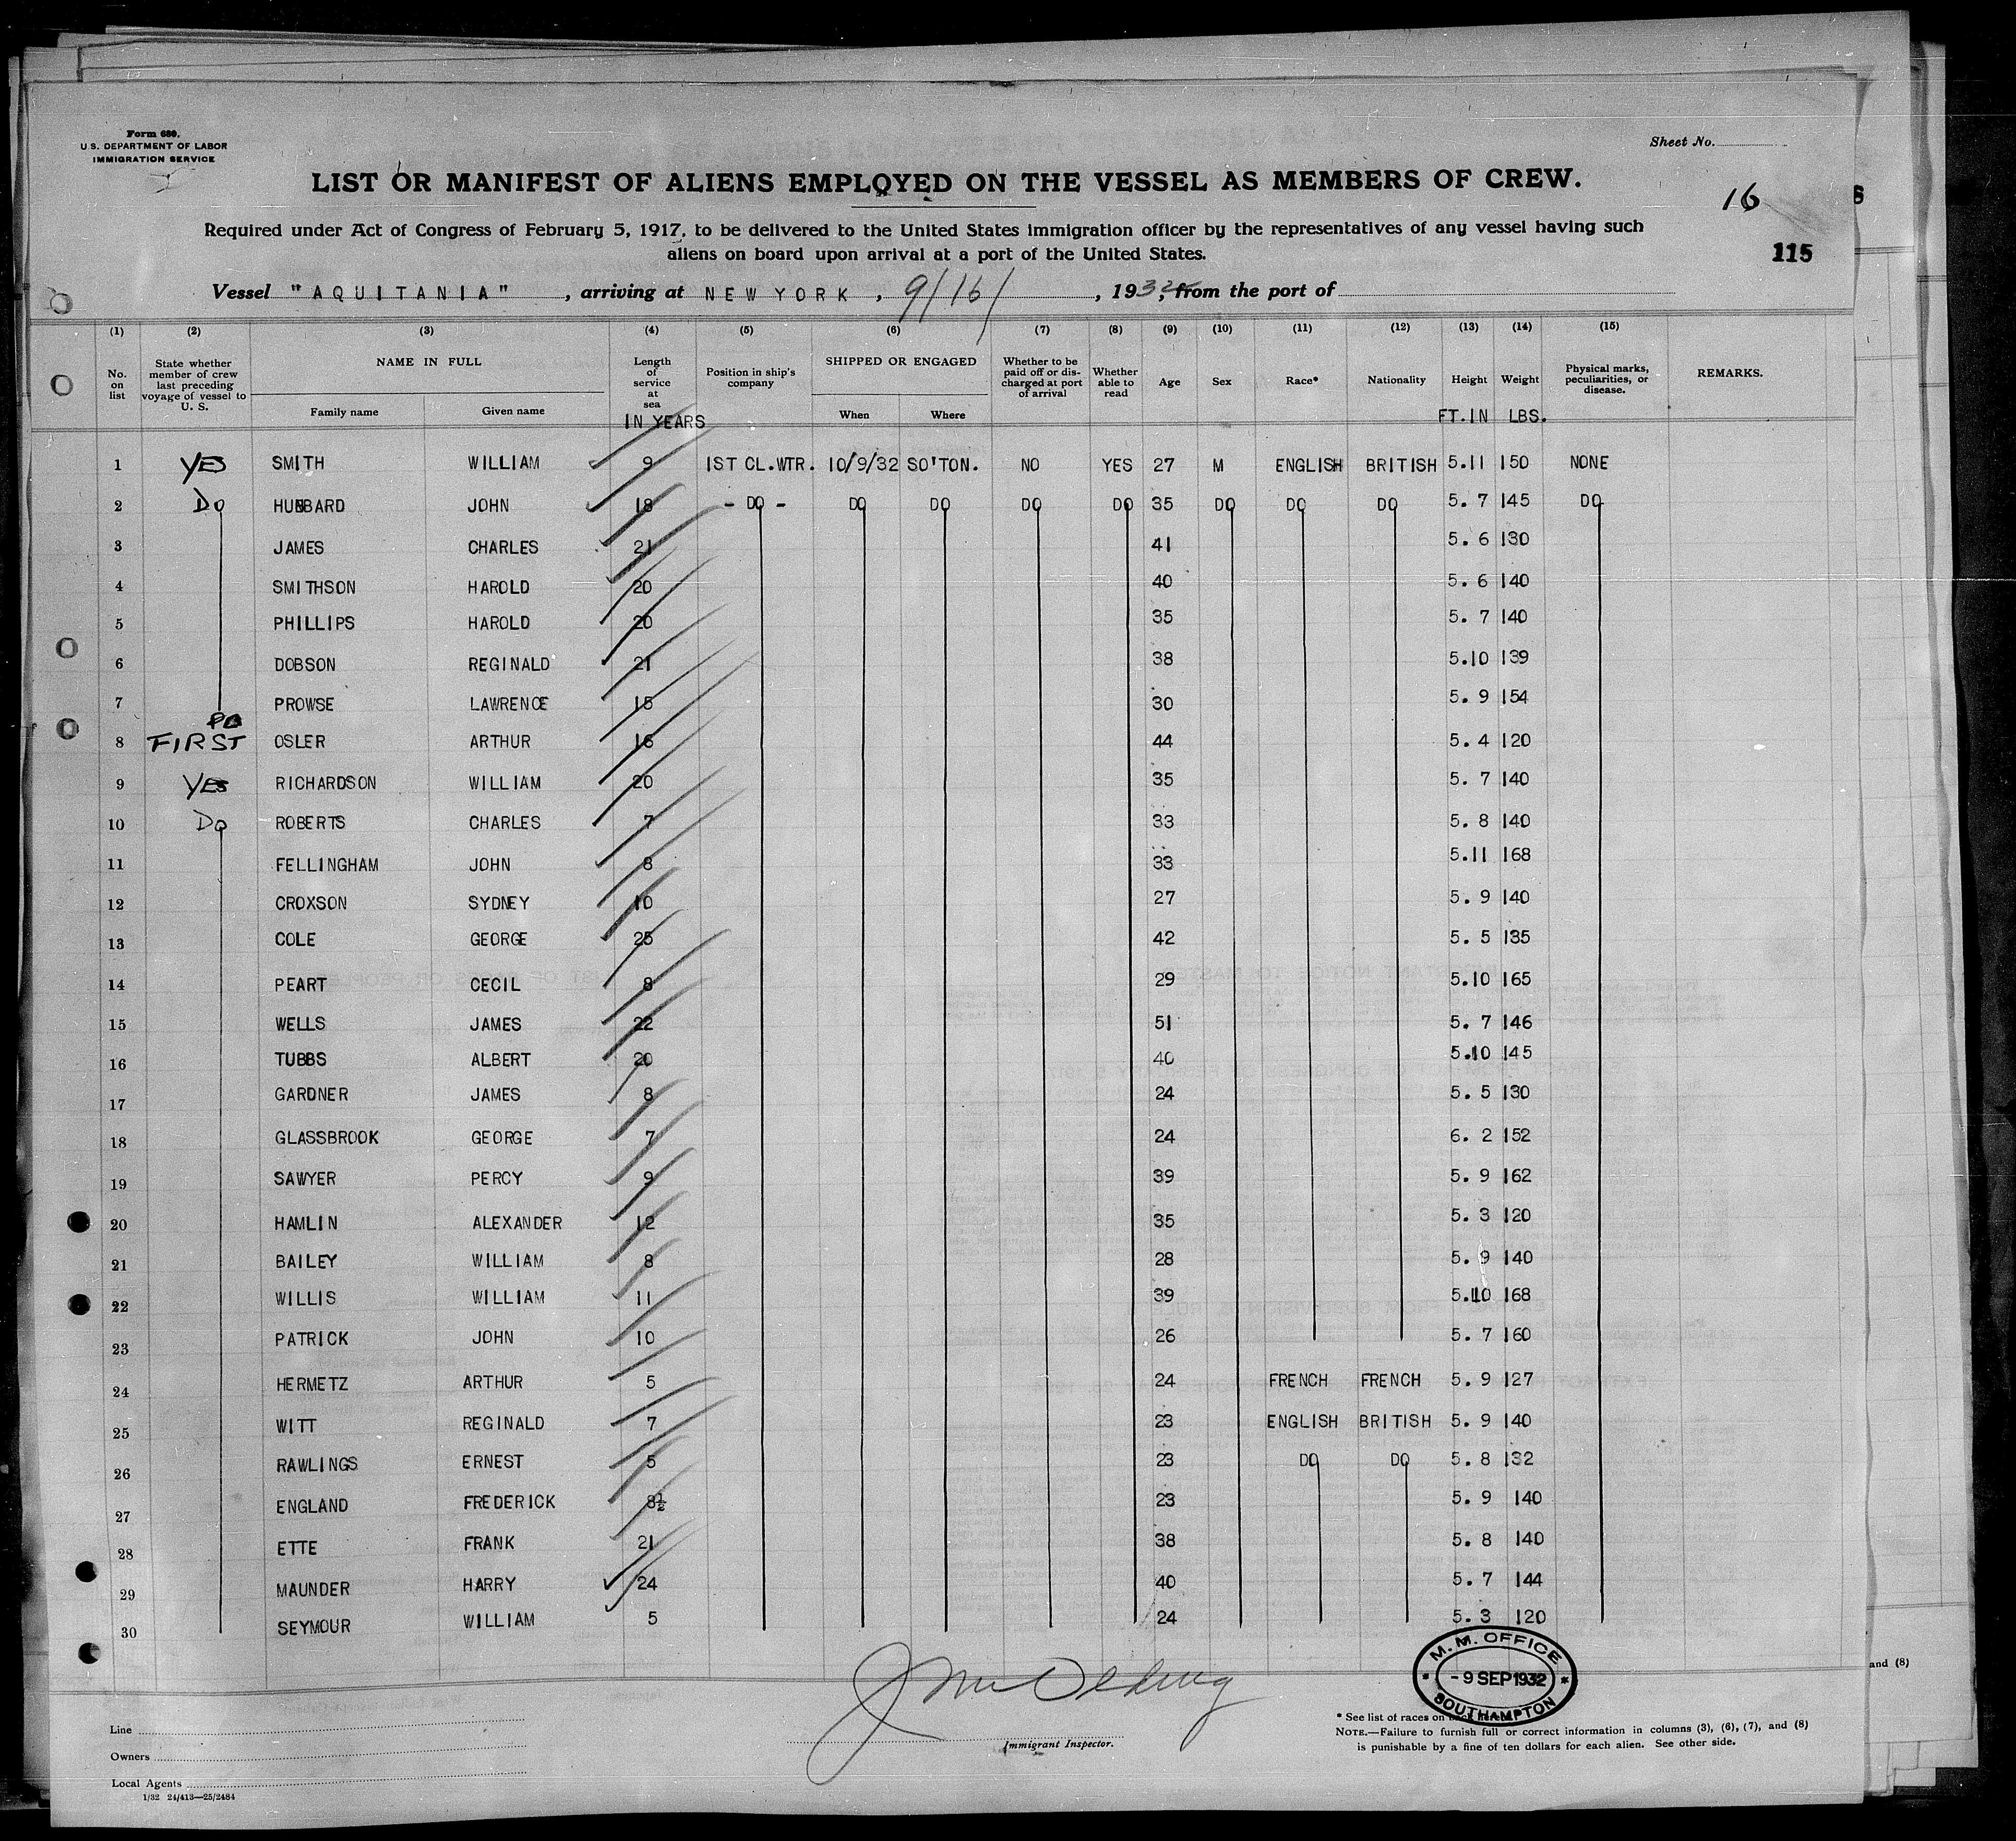 Form 689.
U.S. DEPARTMENT OF LABOR
IMMIGRATION SERVICE
Sheet No.
LIST OR MANIFEST OF ALIENS EMPLOYED ON THE VESSEL AS MEMBERS OF CREW.
16
Required under Act of Congress of February 5, 1917, to be delivered to the United States immigration officer by the representatives of any vessel having such
aliens on board upon arrival at a port of the United States.
115
Vessel "AQUITANIA", arriving at NEW YORK, 9/16/, 1932, from the port of
(1) (2) (3) (4) (5) (6) (7) (8) (9) (10) (11) (12) (13) (14) (15)
No. on list State whether member of crew last preceding voyage of vessel to U. S. NAME IN FULL Family name Given name Length of service at sea IN YEARS Position in ship's company SHIPPED OR ENGAGED When Where Whether to be paid off or discharged at port of arrival Whether able to read Age Sex Race* Nationality Height FT.IN Weight LBS. Physical marks, peculiarities, or disease. REMARKS.
1 YES SMITH WILLIAM 9 IST CL.WTR. 10/9/32 SO'TON. NO YES 27 M ENGLISH BRITISH 5.11 150 NONE
2 Do HUBBARD JOHN 18 - DO - DO DO DO DO 35 DO DO DO 5. 7 145 DO
3 JAMES CHARLES 21 41 5. 6 130
4 SMITHSON HAROLD 20 40 5. 6 140
5 PHILLIPS HAROLD 20 35 5. 7 140
6 DOBSON REGINALD 21 38 5.10 139
7 PROWSE LAWRENCE 15 30 5. 9 154
8 FIRST OSLER ARTHUR 16 44 5. 4 120
9 YES RICHARDSON WILLIAM 20 35 5. 7 140
10 Do ROBERTS CHARLES 7 33 5. 8 140
11 FELLINGHAM JOHN 8 33 5.11 168
12 CROXSON SYDNEY 10 27 5. 9 140
13 COLE GEORGE 25 42 5. 5 135
14 PEART CECIL 8 29 5.10 165
15 WELLS JAMES 22 51 5. 7 146
16 TUBBS ALBERT 20 40 5.10 145
17 GARDNER JAMES 8 24 5. 5 130
18 GLASSBROOK GEORGE 7 24 6. 2 152
19 SAWYER PERCY 9 39 5. 9 162
20 HAMLIN ALEXANDER 12 35 5. 3 120
21 BAILEY WILLIAM 8 28 5. 9 140
22 WILLIS WILLIAM 11 39 5.10 168
23 PATRICK JOHN 10 26 5. 7 160
24 HERMETZ ARTHUR 5 24 FRENCH FRENCH 5. 9 127
25 WITT REGINALD 7 23 ENGLISH BRITISH 5. 9 140
26 RAWLINGS ERNEST 5 23 DO DO 5. 8 132
27 ENGLAND FREDERICK 8½ 23 5. 9 140
28 ETTE FRANK 21 38 5. 8 140
29 MAUNDER HARRY 24 40 5. 7 144
30 SEYMOUR WILLIAM 5 24 5. 3 120
M. M. OFFICE
- 9 SEP 1932
SOUTHAMPTON
and (8)
Line
Owners
Local Agents
1/32 24/413—25/2484
Immigrant Inspector.
* See list of races on back
NOTE.—Failure to furnish full or correct information in columns (3), (6), (7), and (8)
is punishable by a fine of ten dollars for each alien. See other side.